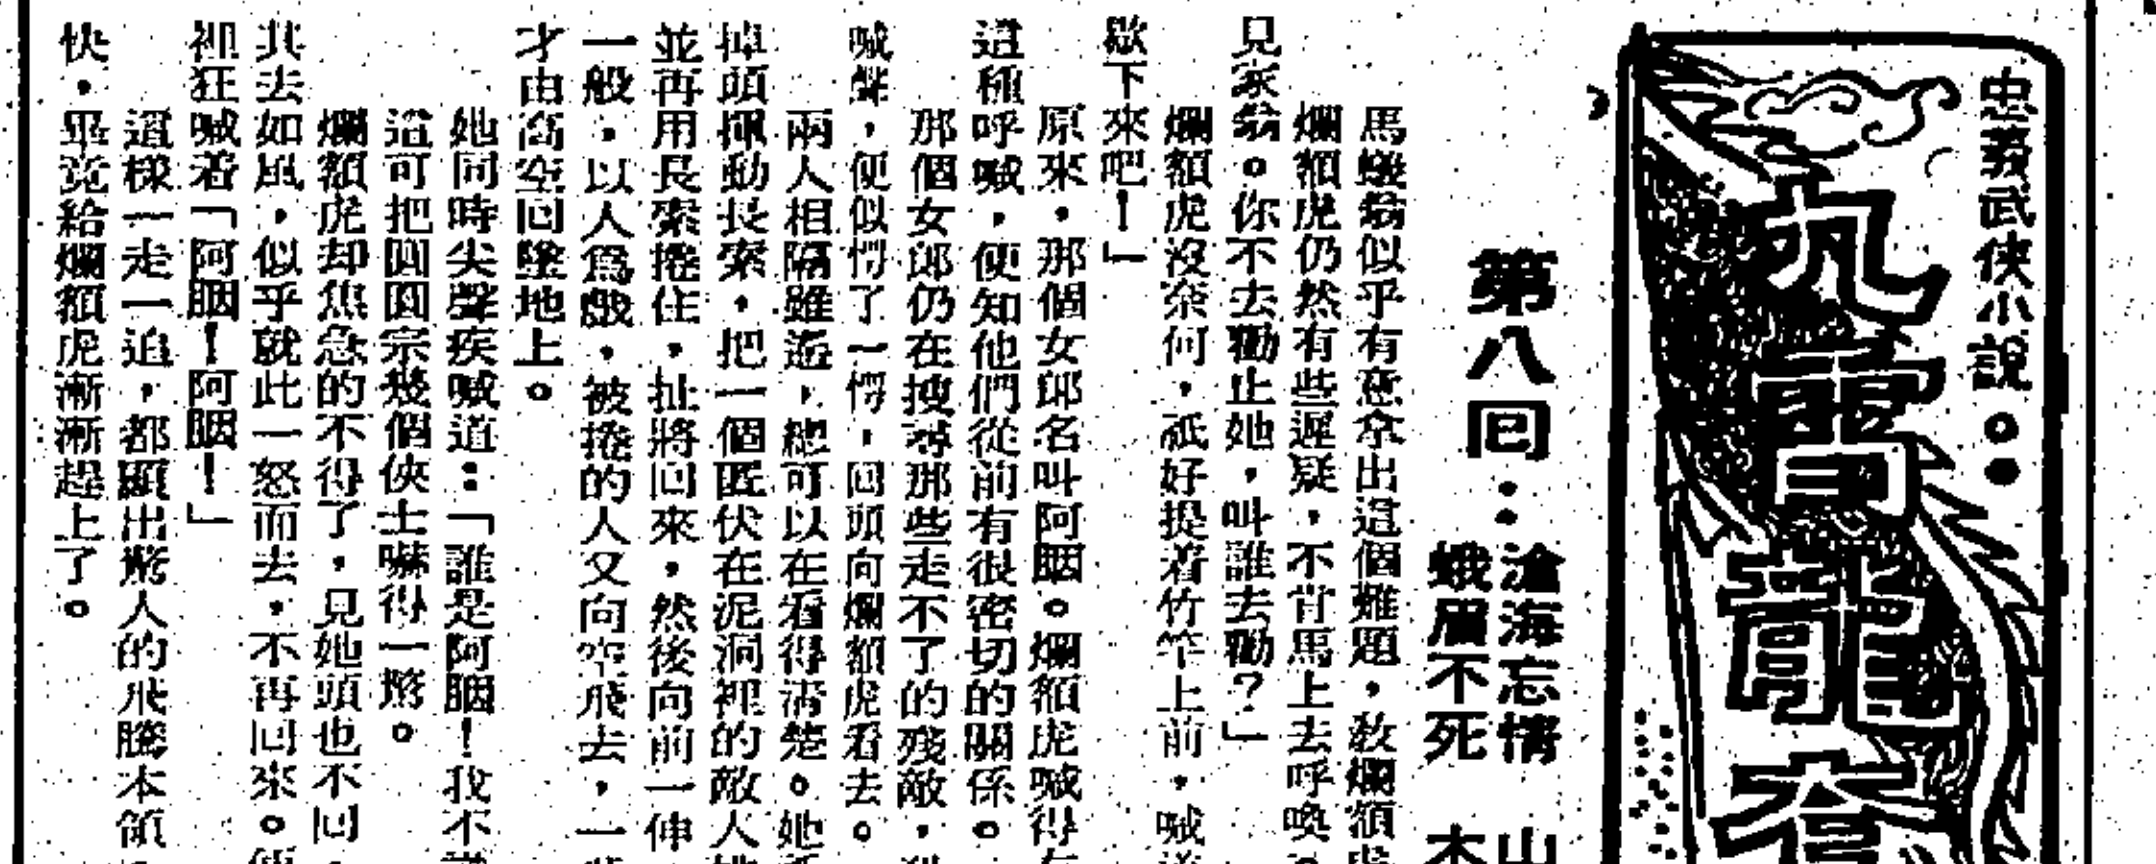 忠義武俠小說
第八回：滄海忘情 山
蛾眉不死 木
馬蟻翁似乎有意拿出這個難題，教爛額虎
爛額虎仍然有些遲疑，不肯馬上去呼喚。
見家翁。你不去勸止她，叫誰去勸？」
爛額虎沒奈何，祇好提着竹竿上前，喊道
歇下來吧！」
原來，那個女郎名叫阿胭。爛額虎喊得
這種呼喊，便知他們從前有很密切的關係。
那個女郎仍在搜尋那些走不了的殘敵，
喊聲，便似愕了一愕，回頭向爛額虎看去。
兩人相隔雖遙，總可以在看得清楚。她
掉頭揮動長索，把一個匿伏在泥洞裡的敵人
並再用長索捲住，扯將回來，然後向前一伸
一般，以人為戲，被捲的人又向空飛去，一
才由高空回墜地上。
她同時尖聲疾喊道：「誰是阿胭！我不
這可把圓圓宗幾個俠士嚇得一驚。
爛額虎却焦急的不得了，見她頭也不回，
其去如風，似乎就此一怒而去，不再回來。
裡狂喊着「阿胭！阿胭！」
這樣一走一追，都顯出驚人的飛騰本領，
快，畢竟給爛額虎漸漸趕上了。